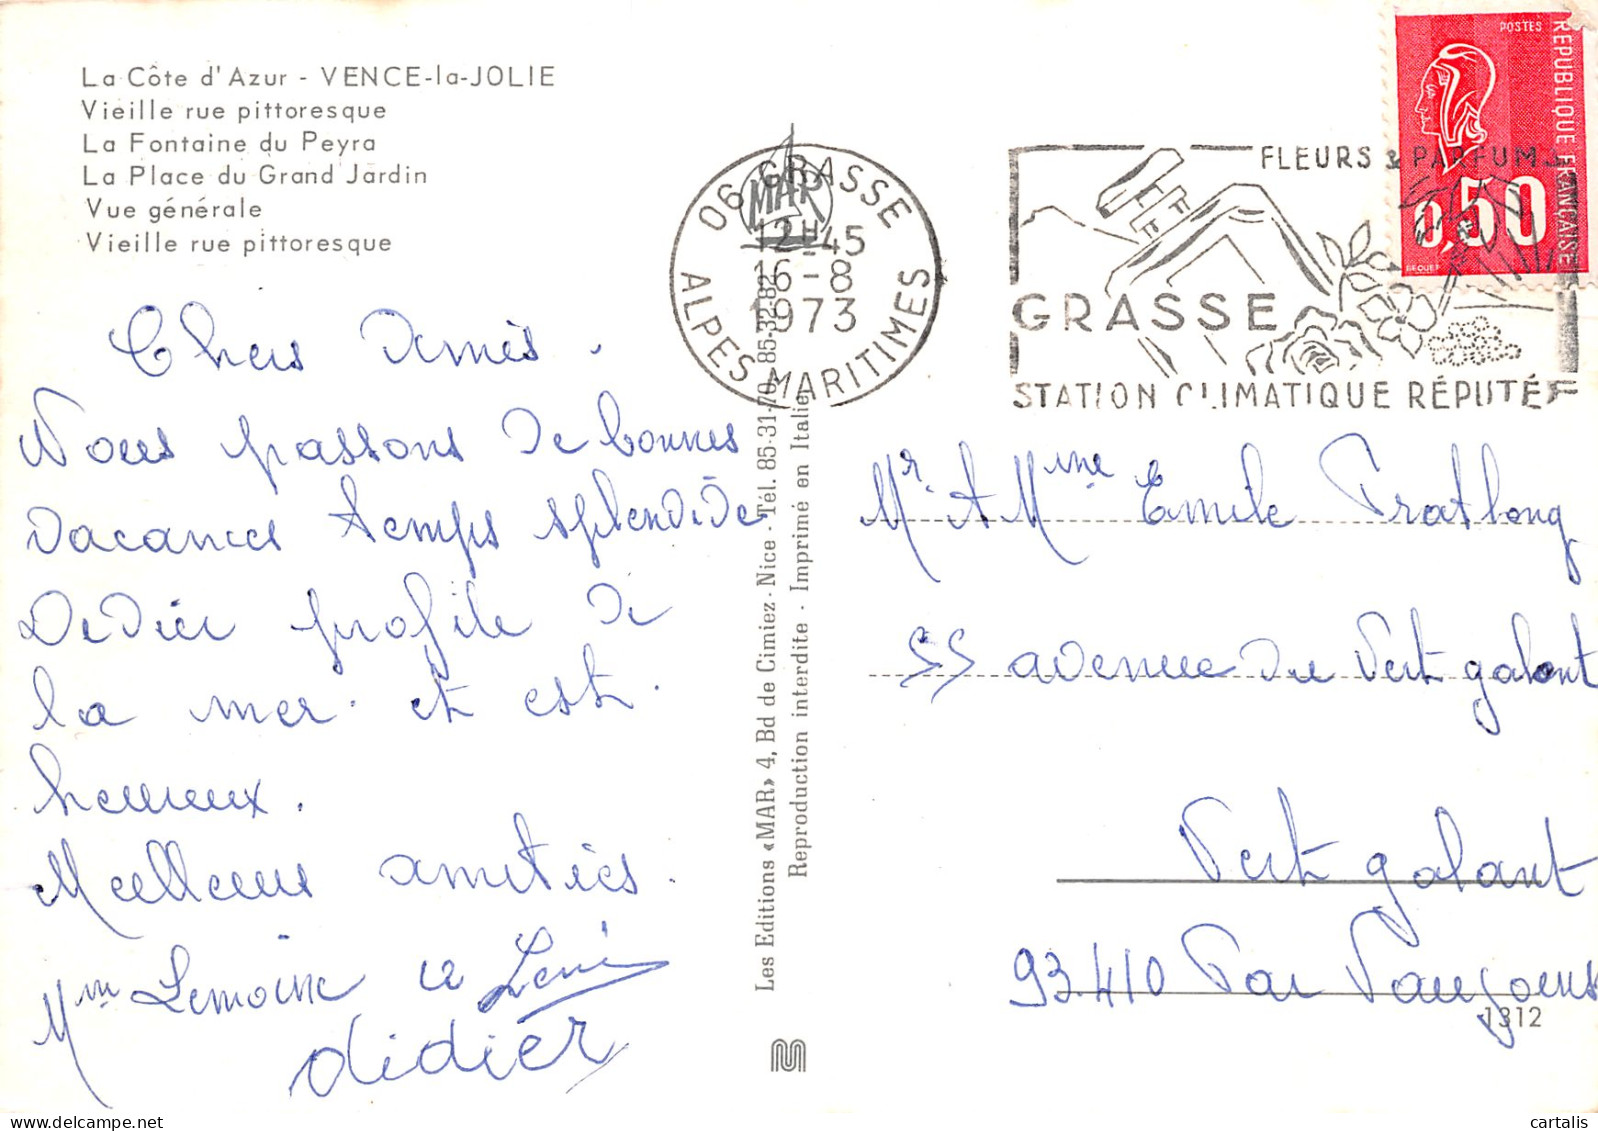 La Côte d'Azur - VENCE-la-JOLIE
Vieille rue pittoresque
La Fontaine du Peyra
La Place du Grand Jardin
Vue générale
Vieille rue pittoresque
Chers Amis.
Nous passons de bonnes
vacances temps splendide
Didier profite de
la mer. et est
heureux.
Meilleures amitiés.
Mme Lemoine et
didier
Les Editions «MAR» 4, Bd de Cimiez - Nice - Tél. 85-31-70, 85-32-82
Reproduction interdite - Imprimé en Italie
MAR
06 GRASSE
12H45
16-8
1973
ALPES MARITIMES
FLEURS & PARFUMS
GRASSE
STATION CLIMATIQUE RÉPUTÉE
POSTES
REPUBLIQUE FRANÇAISE
0,50
BEQUET
Mr. & Mme Emile Pratlong
55 avenue du Vert galant
Vert galant
93.410 Par Vaujours
1312
cartalis